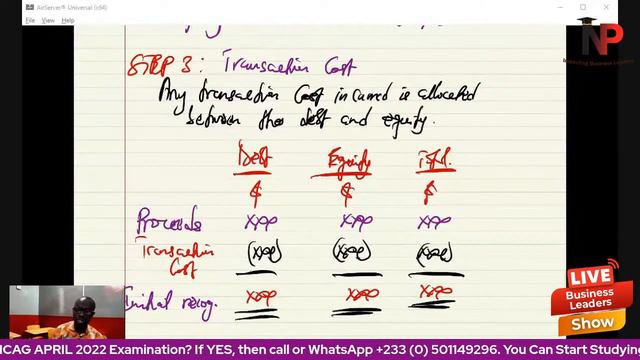 AirServer® Universal (x64)
File View Help
NP
Impacting Business Leaders
STEP 3: Transaction Cost
Any transaction Cost incurred is allocated
between the debt and equity.
Debt Equity Total
$ $ $
Proceeds xxx xxx xxx
Transaction (xxx) (xxx) (xxx)
Cost
Initial recog. xxx xxx xxx
LIVE
Business
Leaders
Show
ICAG APRIL 2022 Examination? If YES, then call or WhatsApp +233 (0) 501149296. You Can Start Studying